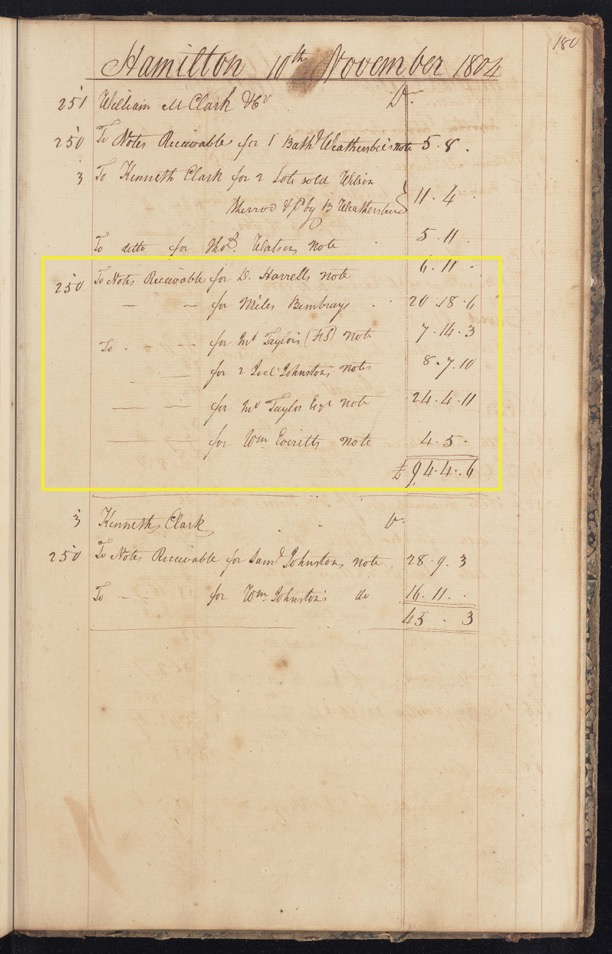 180
Hamilton 10th November 1804
251 William M Clark Dr.
250 To Notes Receivable for 1 note 5. 8.
3 To Kenneth Clark for 2 Lots sold
by B 11. 4
To ditto for Thos. Watsons note 5. 11
250 To Notes Receivable for D. Harrells note 6. 11.
— — for Miles 20. 18. 6
To. — for Mr Taylors note 7. 14. 3
— — for 2 Johnstons notes 8. 7. 10
— — for Mr Taylor Esqr note 24. 4. 11
— — for Wm. Everitts note 4. 5.
£ 94. 4. 6
3 Kenneth Clark Dr.
250 To Notes Receivable for Saml. Johnstons note 28. 9. 3
To — for Wm. Johnstons do 16. 11.
45. . 3